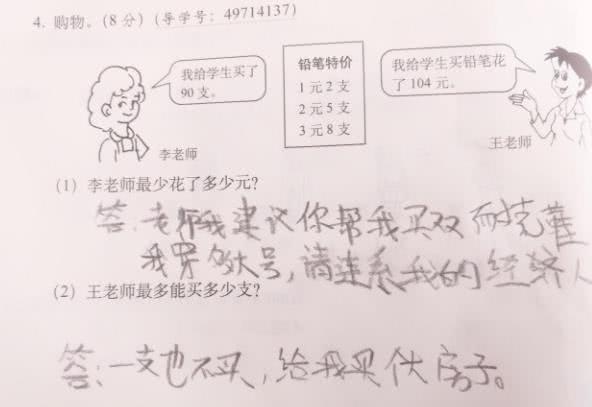 4. 购物。(8分)(导学号：49714137)
我给学生买了
90支。
李老师
铅笔特价
1元2支
2元5支
3元8支
我给学生买铅笔花
了104元。
王老师
(1) 李老师最少花了多少元？
答：老师我建议你帮我买双耐克鞋
我穿 大号，请连系我的经济人
(2) 王老师最多能买多少支？
答：一支也不买，给我买 房子。